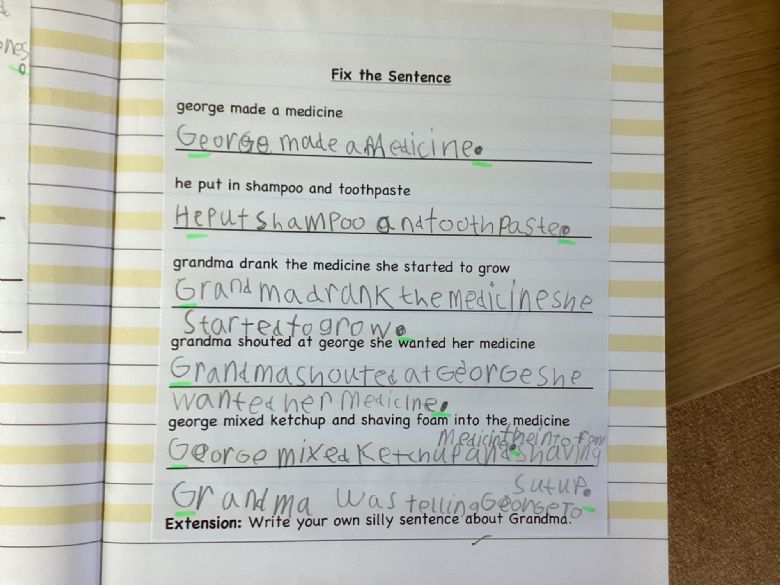 ones.
Fix the Sentence
george made a medicine
George made a Medicine.
he put in shampoo and toothpaste
He put shampoo and toothpaste.
grandma drank the medicine she started to grow
Grandma drank the medicine she
started to grow.
grandma shouted at george she wanted her medicine
Grandma shouted at George she
wanted her medicine.
george mixed ketchup and shaving foam into the medicine
Medicine the into fom
George mixed Ketchup and shaving
sutup.
Grandma was telling George To
Extension: Write your own silly sentence about Grandma.